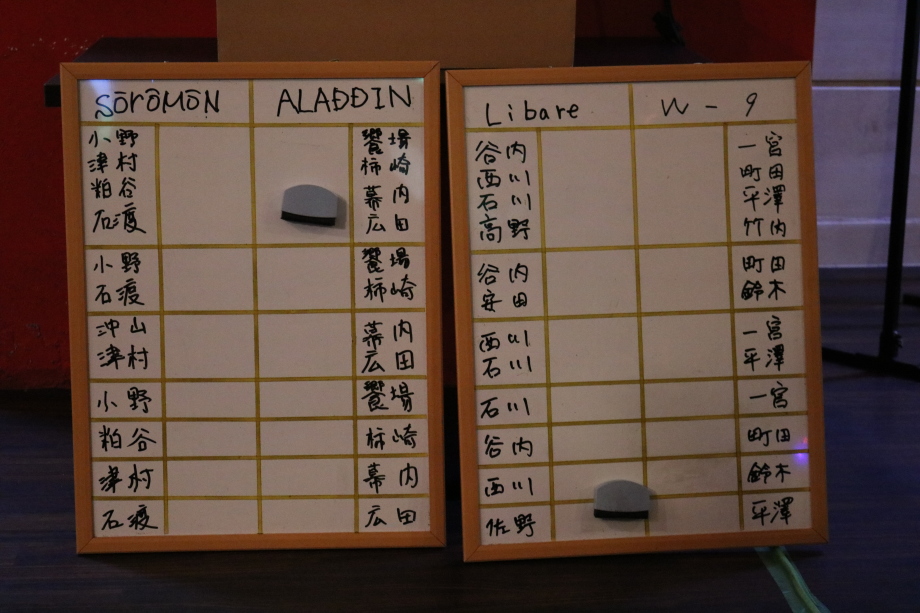 SōrōMōN ALADDIN
小野 饗場
津村 柿崎
粕谷 幕内
石渡 広田
小野 饗場
石渡 柿崎
沖山 幕内
津村 広田
小野 饗場
粕谷 柿崎
津村 幕内
石渡 広田
Libare W-9
谷内 一宮
西川 町田
石川 平澤
高野 竹内
谷内 町田
安田 鈴木
西川 一宮
石川 平澤
石川 一宮
谷内 町田
西川 鈴木
佐野 平澤